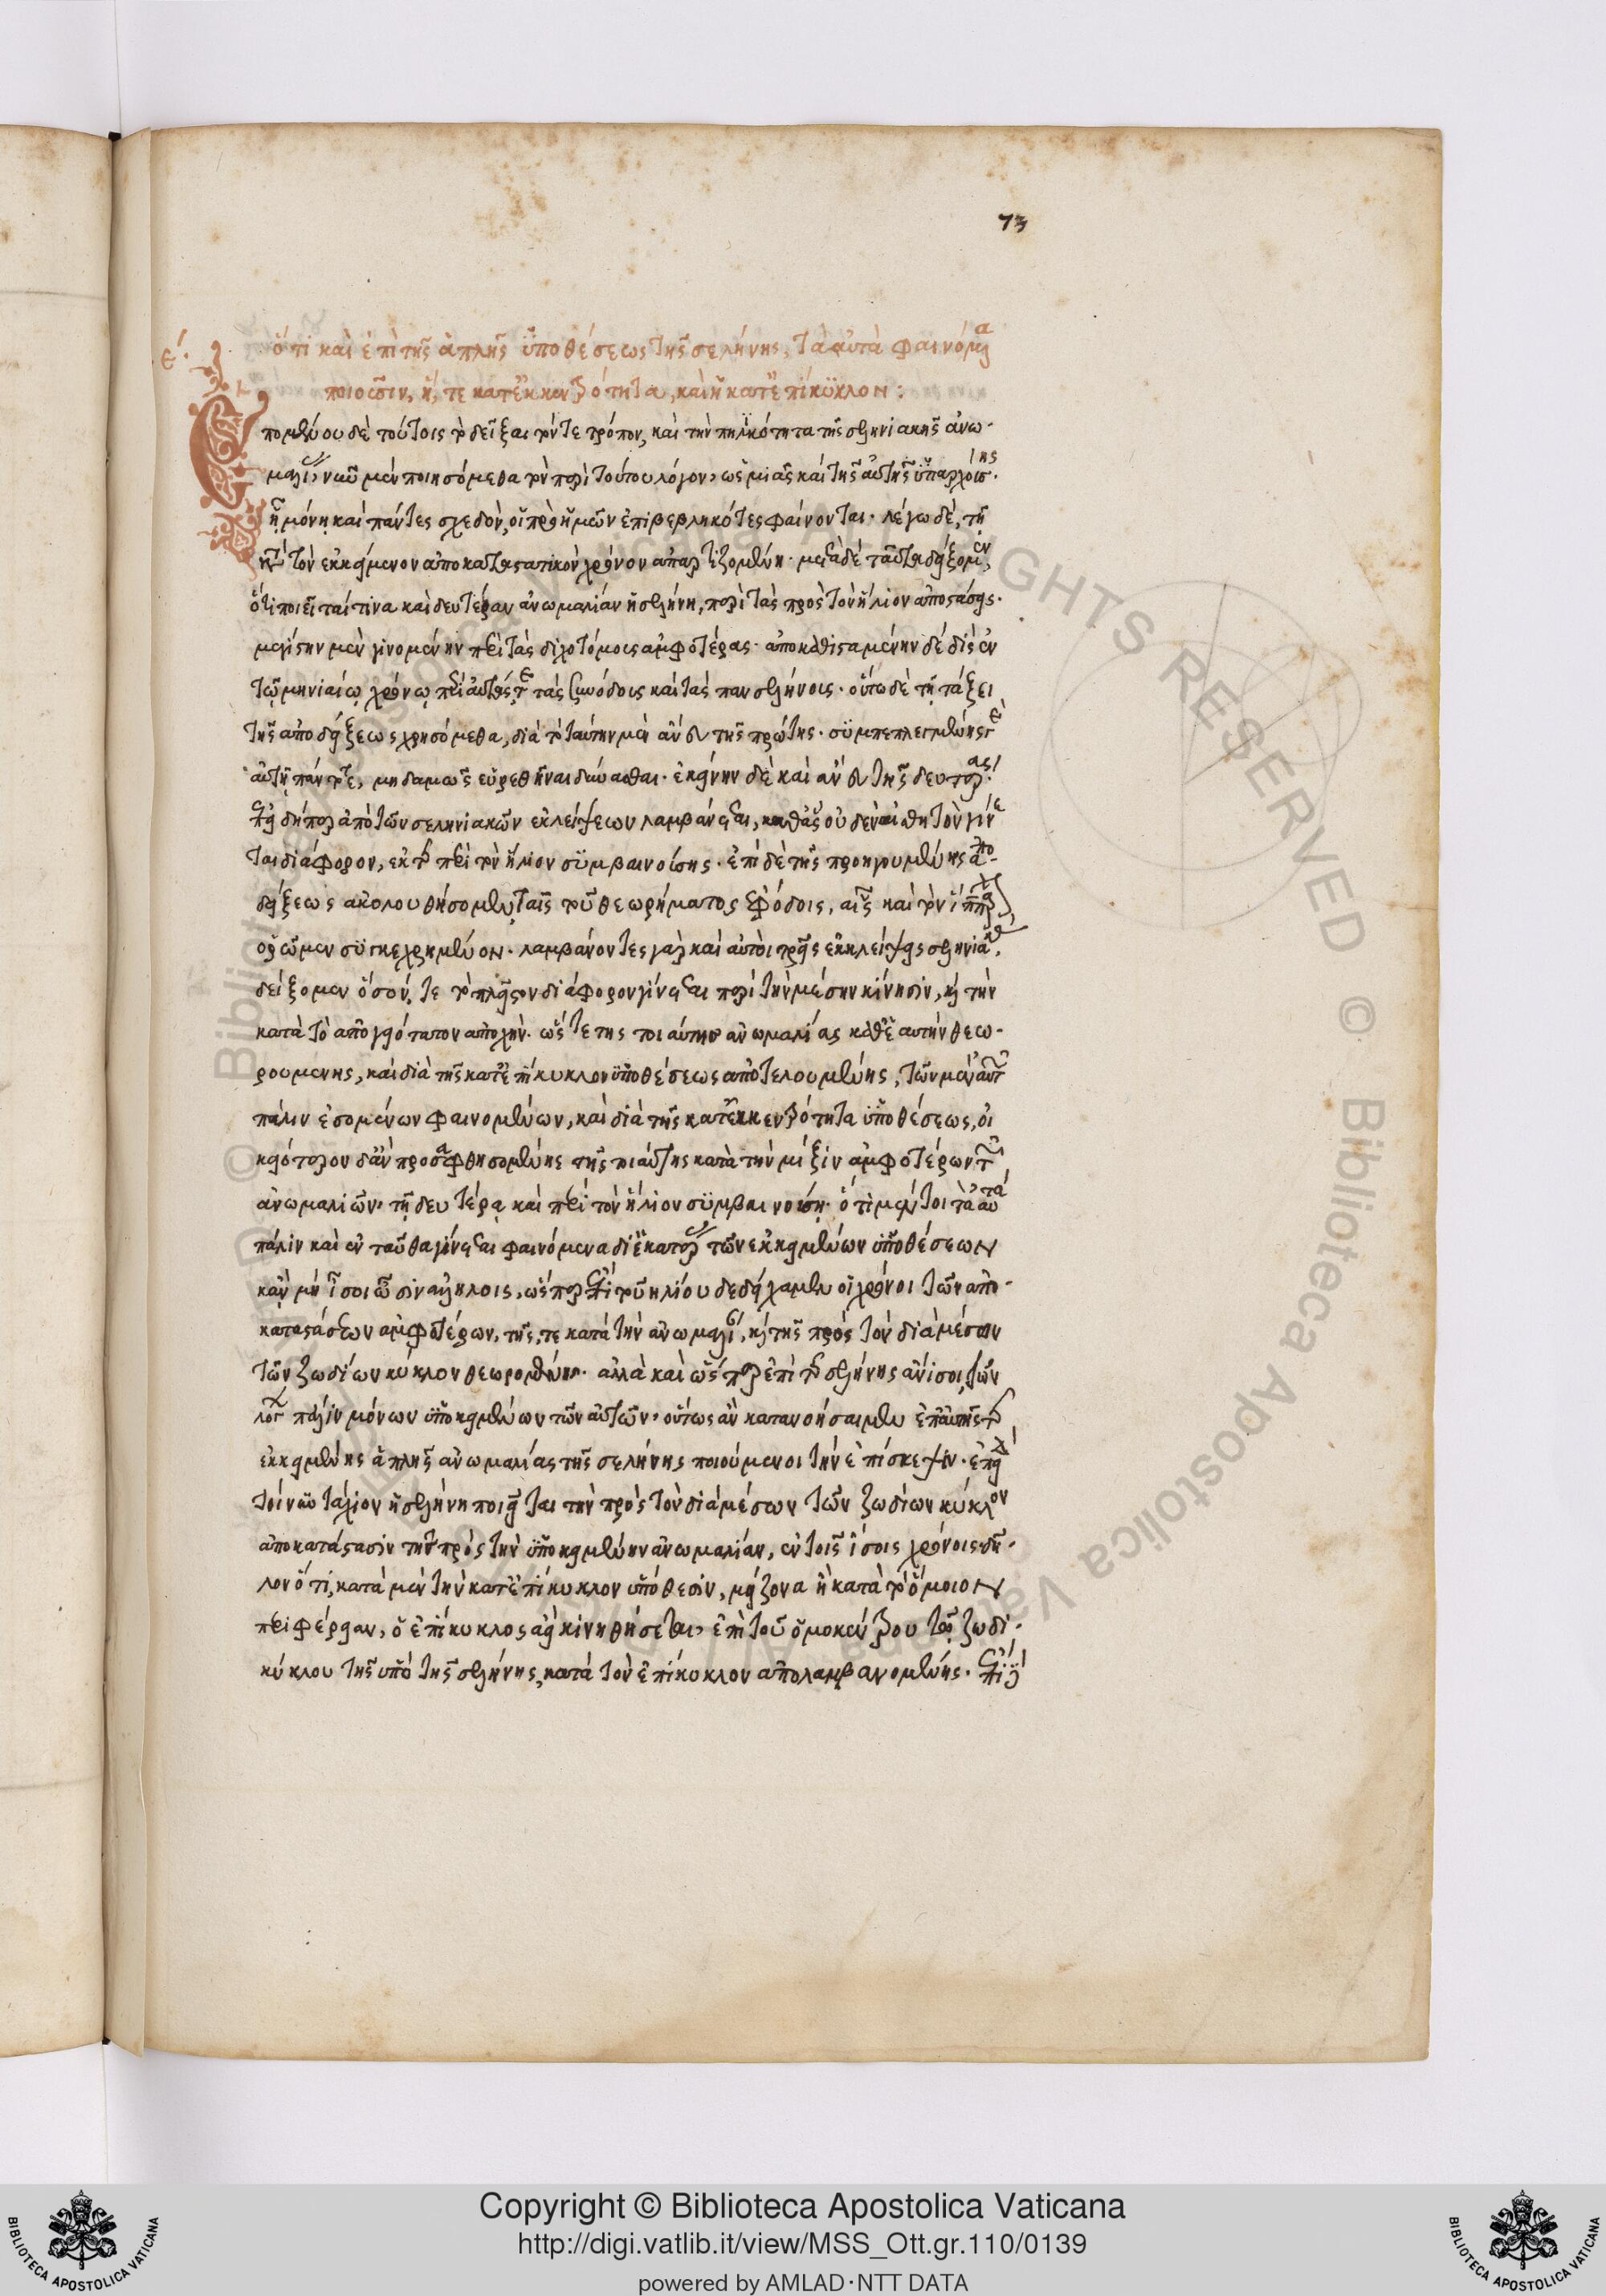 73
ε΄. ὅτι καὶ ἐπὶ τῆς ἁπλῆς ὑποθέσεως τῆς σελήνης, τὰ αὐτὰ φαινόμενα
ποιοῦσιν, ἥ, τε κατ' ἐκκεντρότητα, καὶ ἡ κατ' ἐπίκυκλον:
Ἑπομένου δὲ τούτοις τὸ δεῖξαι τόν τε τρόπον, καὶ τὴν πηλικότητα τῆς σεληνιακῆς ἀνω-
μαλίας, νῦν μὲν ποιησόμεθα τὸν περὶ τούτου λόγον, ὡς μιᾶς καὶ τῆς αὐτῆς ὑπαρχούσης.
ᾗ μόνῃ καὶ πάντες σχεδὸν, οἱ πρὸ ἡμῶν ἐπιβεβληκότες φαίνονται. λέγω δὲ, τῇ
κατὰ τὸν ἐκκείμενον ἀποκαταστατικὸν χρόνον ἀπαρτιζομένῃ. μετὰ δὲ ταῦτα δείξομεν,
ὅτι ποιεῖταί τινα καὶ δευτέραν ἀνωμαλίαν ἡ σελήνη, περὶ τὰς πρὸς τὸν ἥλιον ἀποστάσεις.
μεγίστην μὲν γινομένην περὶ τὰς διχοτόμους ἀμφοτέρας. ἀποκαθισταμένην δὲ δὶς ἐν
τῷ μηνιαίῳ χρόνῳ περὶ αὐτάς τε τὰς συνόδους καὶ τὰς πανσελήνους. οὕτω δὲ τῇ τάξει
τῆς ἀποδείξεως χρησόμεθα, διὰ τὸ ταύτην μὲν ἄνευ τῆς πρώτης. συμπεπλεγμένης
αὐτῇ πάντοτε, μηδαμῶς εὑρεθῆναι δύνασθαι. ἐκείνην δὲ καὶ ἄνευ τῆς δευτέρας.
ἐπειδήπερ ἀπὸ τῶν σεληνιακῶν ἐκλείψεων λαμβάνεται, καθ' ἃς οὐδὲν αἰσθητὸν γίνε
ται διάφορον, ἐκ τῆς περὶ τὸν ἥλιον συμβαινούσης. ἐπὶ δὲ τῆς προηγουμένης ἀπο-
δείξεως ἀκολουθήσομεν ταῖς τοῦ θεωρήματος ἐφόδοις, αἷς καὶ τὸν ἵππαρχον
ὁρῶμεν συγκεχρημένον. λαμβάνοντες γὰρ καὶ αὐτοὶ τρεῖς ἐκλείψεις σεληνιακάς,
δείξομεν ὅσον, τε τὸ πλεῖστον διάφορον γίνεται περὶ τὴν μέσην κίνησιν, καὶ τὴν
κατὰ τὸ ἀπογειότατον ἀποχήν. ὥστε τῆς τοιαύτης ἀνωμαλίας καθ' ἑαυτὴν θεω-
ρουμένης, καὶ διὰ τῆς κατ' ἐπίκυκλον ὑποθέσεως ἀποτελουμένης, τῶν μὲν αὐτῶν
πάλιν ἐσομένων φαινομένων, καὶ διὰ τῆς κατ' ἐκκεντρότητα ὑποθέσεως, οἰ
κειότερον δ' ἂν προσαφθησομένης τῆς τοιαύτης κατὰ τὴν μίξιν ἀμφοτέρων τῶν
ἀνωμαλιῶν. τῇ δευτέρᾳ καὶ περὶ τὸν ἥλιον συμβαινούσῃ. ὅτι μέντοι τὰ αὐτὰ
πάλιν καὶ ἐνταῦθα γίνεται φαινόμενα δι' ἑκατέρας τῶν ἐκκειμένων ὑποθέσεων
κἂν μὴ ἴσοι ὦσιν ἀλλήλοις, ὥσπερ ἐπὶ τοῦ ἡλίου δεδείχαμεν οἱ χρόνοι τῶν ἀπο-
καταστάσεων ἀμφοτέρων, τῆς, τε κατὰ τὴν ἀνωμαλίαν, καὶ τῆς πρὸς τὸν διὰ μέσων
τῶν ζωδίων κύκλον θεωρουμένης. ἀλλὰ καὶ ὥσπερ ἐπὶ τῆς σελήνης ἄνισοι, τῶν
λόγων πάλιν μόνων ὑποκειμένων τῶν αὐτῶν, οὕτως ἂν κατανοήσαιμεν ἐπ' αὐτῆς τῆς
ἐκκειμένης ἁπλῆς ἀνωμαλίας τῆς σελήνης ποιούμενοι τὴν ἐπίσκεψιν. ἐπεὶ
τοίνυν τάχιον ἡ σελήνη ποιεῖται τὴν πρὸς τὸν διὰ μέσων τῶν ζωδίων κύκλον
ἀποκατάστασιν τῆς πρὸς τὴν ὑποκειμένην ἀνωμαλίαν, ἐν τοῖς ἴσοις χρόνοις δῆ-
λον ὅτι, κατὰ μὲν τὴν κατ' ἐπίκυκλον ὑπόθεσιν, μείζονα ἢ κατὰ τὸ ὅμοιον
περιφέρειαν, ὁ ἐπίκυκλος ἀεὶ κινηθήσεται, ἐπὶ τοῦ ὁμοκέντρου τῷ ζωδι-
κύκλου τῆς ὑπὸ τῆς σελήνης, κατὰ τὸν ἐπίκυκλον ἀπολαμβανομένης.
BIBLIOTECA APOSTOLICA VATICANA
Copyright © Biblioteca Apostolica Vaticana
http://digi.vatlib.it/view/MSS_Ott.gr.110/0139
powered by AMLAD·NTT DATA
BIBLIOTECA APOSTOLICA VATICANA